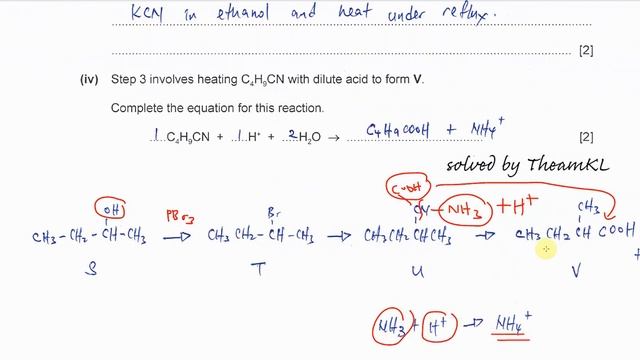 KCN in ethanol and heat under reflux.
[2]
(iv) Step 3 involves heating C₄H₉CN with dilute acid to form V.
Complete the equation for this reaction.
1 C₄H₉CN + 1 H⁺ + 2 H₂O → C₄H₉COOH + NH₄⁺ [2]
solved by TheamKL
COOH
OH PBr₃ Br CN — NH₃ + H⁺ CH₃
CH₃-CH₂-CH-CH₃ → CH₃CH₂-CH-CH₃ → CH₃CH₂CHCH₃ → CH₃CH₂CH COOH +
S T U V
NH₃ + H⁺ → NH₄⁺